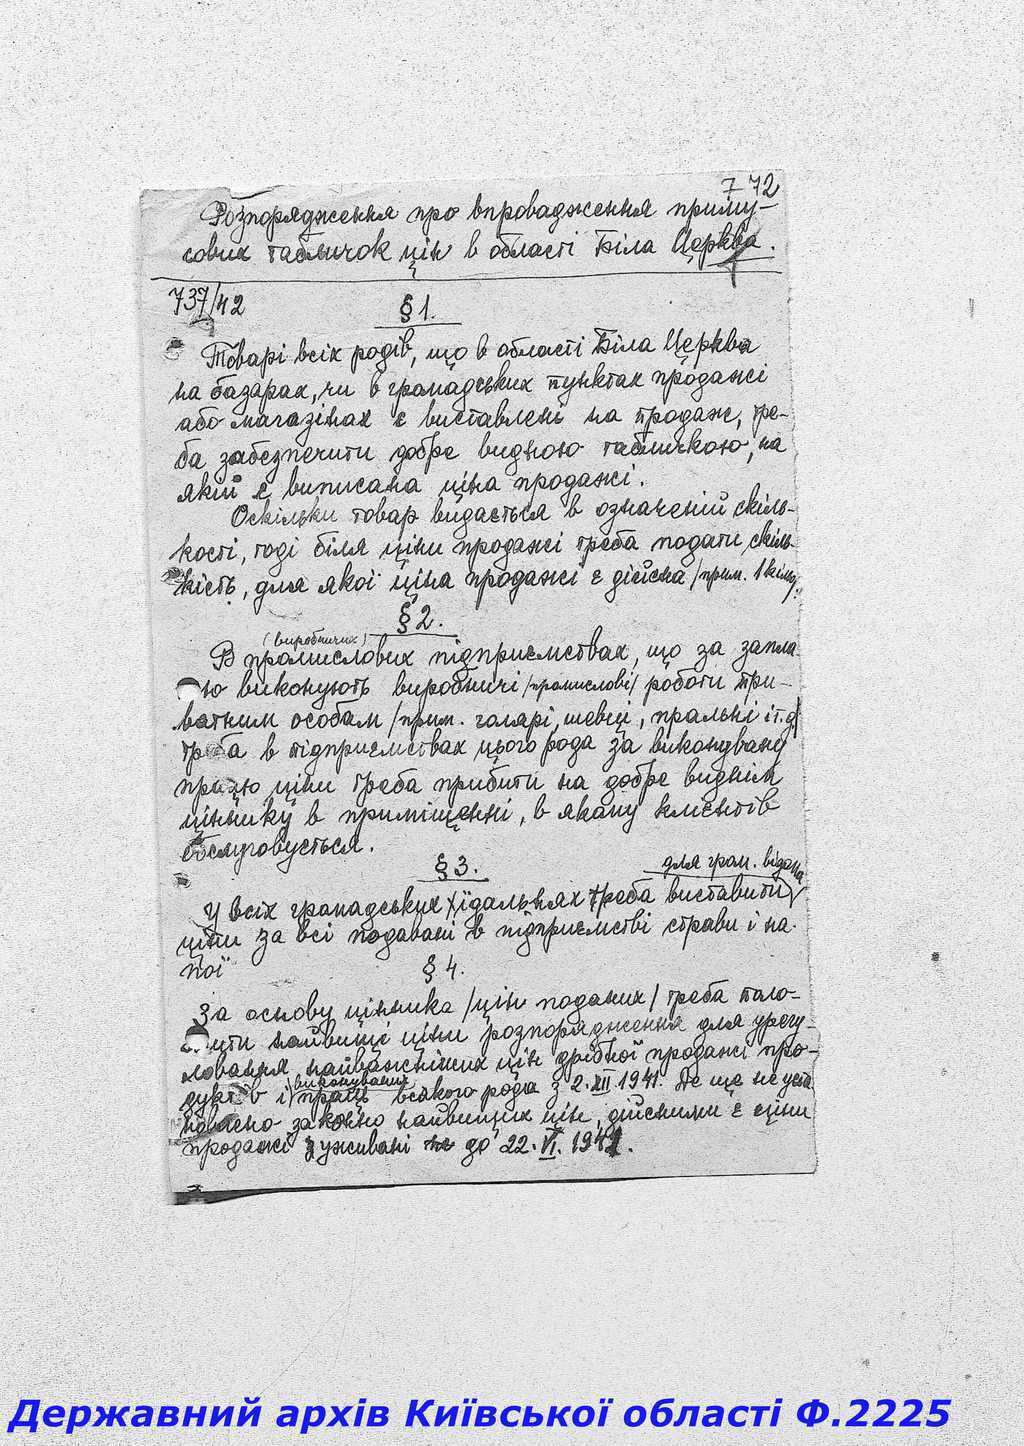 7 72
Розпорядження про впровадження приму-
сових табличок цін в області Біла Церква.
737/42
§ 1.
Товарі всіх родів, що в області Біла Церква
на базарах, чи в громадських пунктах продажі
або магазінах є виставлені на продаж, тре-
ба забезпечити добре видною табличкою, на
якій є виписана ціна продажі.
Оскільки товар видається в означеній скіль-
кості, тоді біля ціни продажі треба подати скіль-
кість, для якої ціна продажі є дійсна /прим. 1 кілму/.
§ 2.
(виробничих)
В промислових підприємствах, що за запла
ю виконують виробничі /промислові/ роботи при-
ватним особам /прим. голярі, шевці, пральні і т.д/
треба в підприємствах цього рода за виконувану
працю ціни треба прибити на добре виднім
ціннику в приміщенні, в якому клієнтів
обслуговується.
§ 3.
для гром. відома
У всіх громадських їдальнях треба виставити
ціни за всі подавані в підприємстві страви і на-
пої
§ 4.
За основу цінника /цін поданих/ треба поло-
жити найвищі ціни розпорядження для урегу-
лювання найважніших цін дрібної продажі про-
виконування
дуктів і праць всякого рода з 2.XII 1941. Де ще не уста
новлено законно найвищих цін, дійсними є ціни
продажі уживані до 22. VI. 1941.
Державний архів Київської області Ф.2225